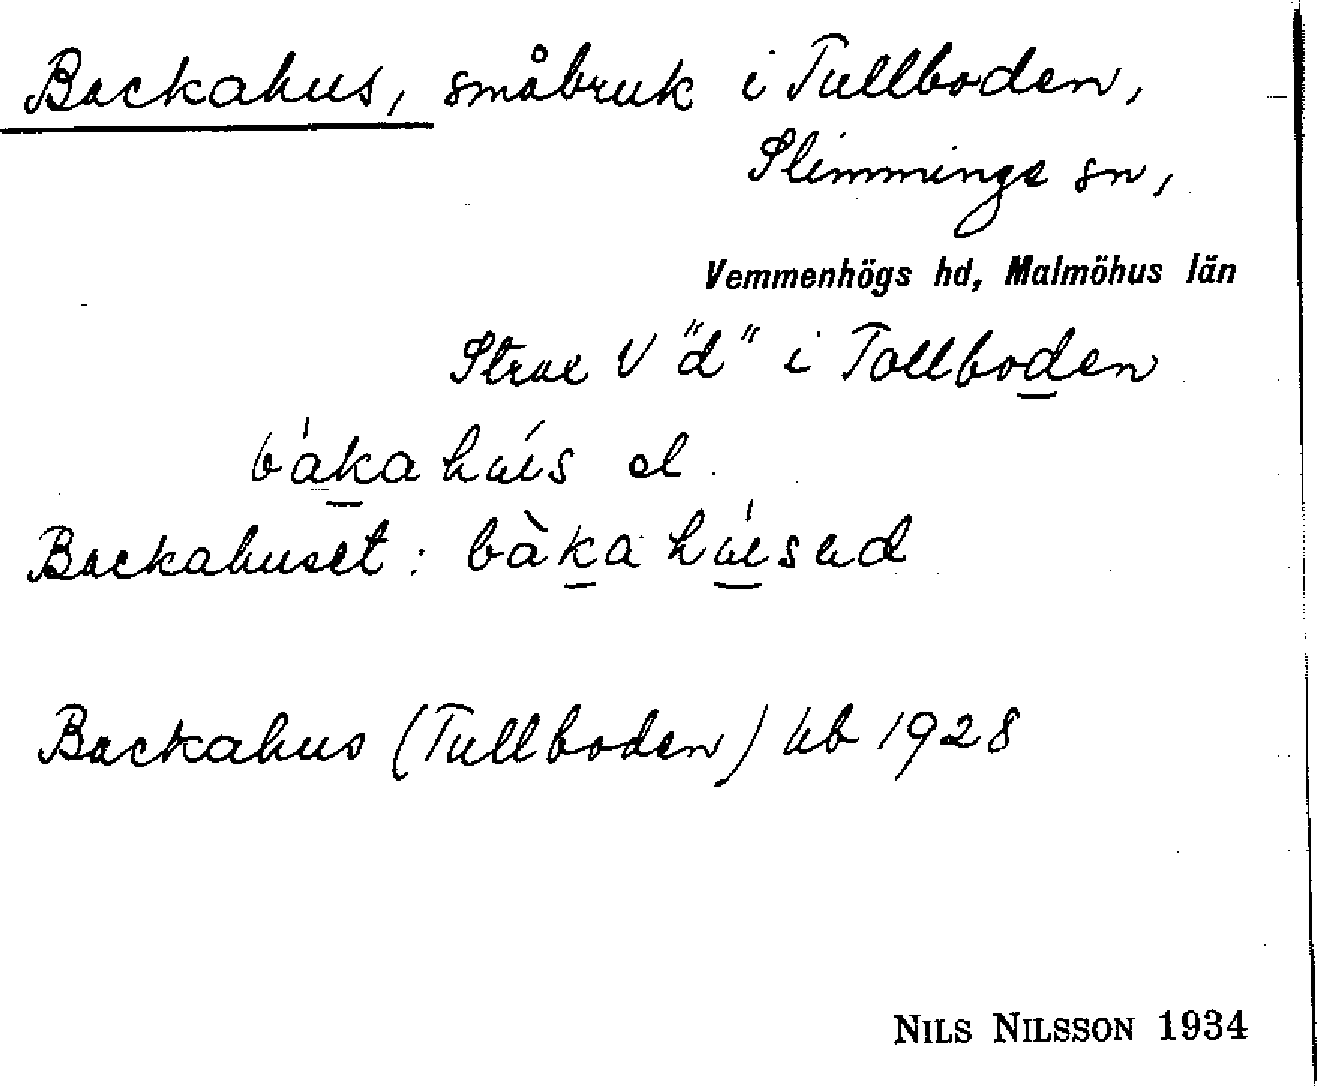 Backahus, småbruk i Tullboden,
Slimminge sn,
Vemmenhögs hd, Malmöhus län
Strax V "d" i Tullboden
bákahúis el
Backahuset: bàkahúisəd
Backahus (Tullboden) kb 1928
NILS NILSSON 1934